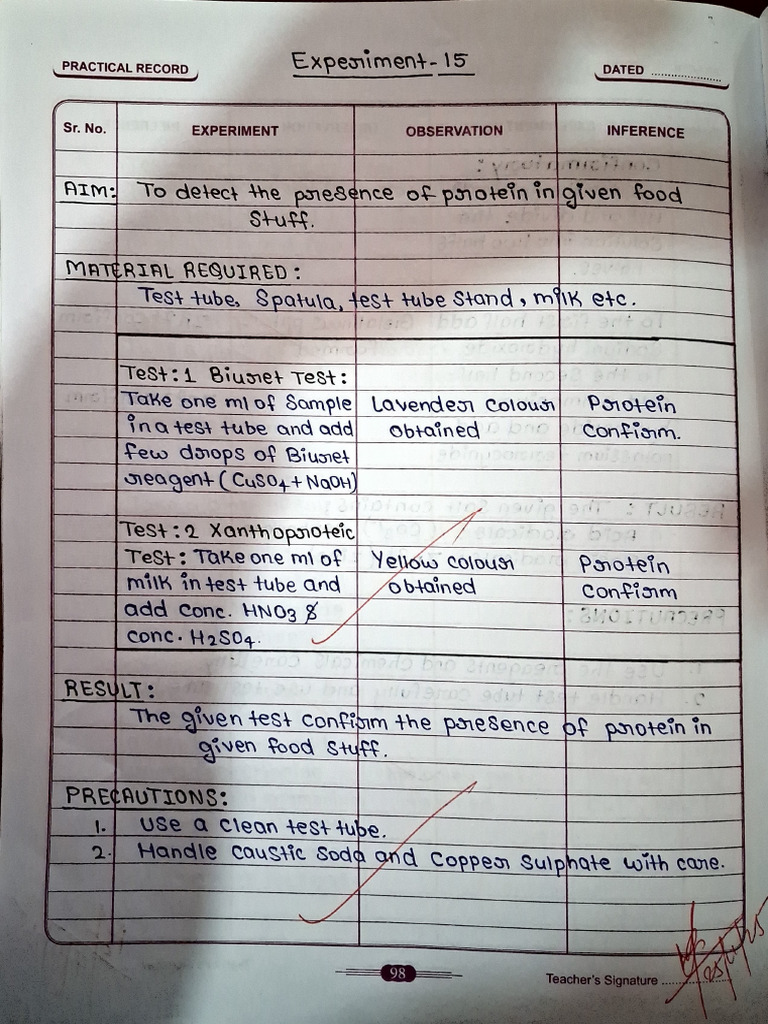 Experiment-15
PRACTICAL RECORD
DATED ....................
Sr. No. EXPERIMENT OBSERVATION INFERENCE
AIM: To detect the presence of protein in given food
Stuff.
MATERIAL REQUIRED:
Test tube, Spatula, test tube Stand, milk etc.
Test: 1 Biuret Test:
Take one ml of Sample Lavender colour Protein
in a test tube and add obtained Confirm.
few drops of Biuret
reagent (CuSO4 + NaOH)
Test: 2 Xanthoproteic
Test: Take one ml of Yellow colour Protein
milk in test tube and obtained Confirm
add conc. HNO3 &
conc. H2SO4.
RESULT:
The given test confirm the presence of protein in
given food Stuff.
PRECAUTIONS:
1. Use a clean test tube.
2. Handle caustic Soda and Copper Sulphate with care.
98
Teacher's Signature ....................